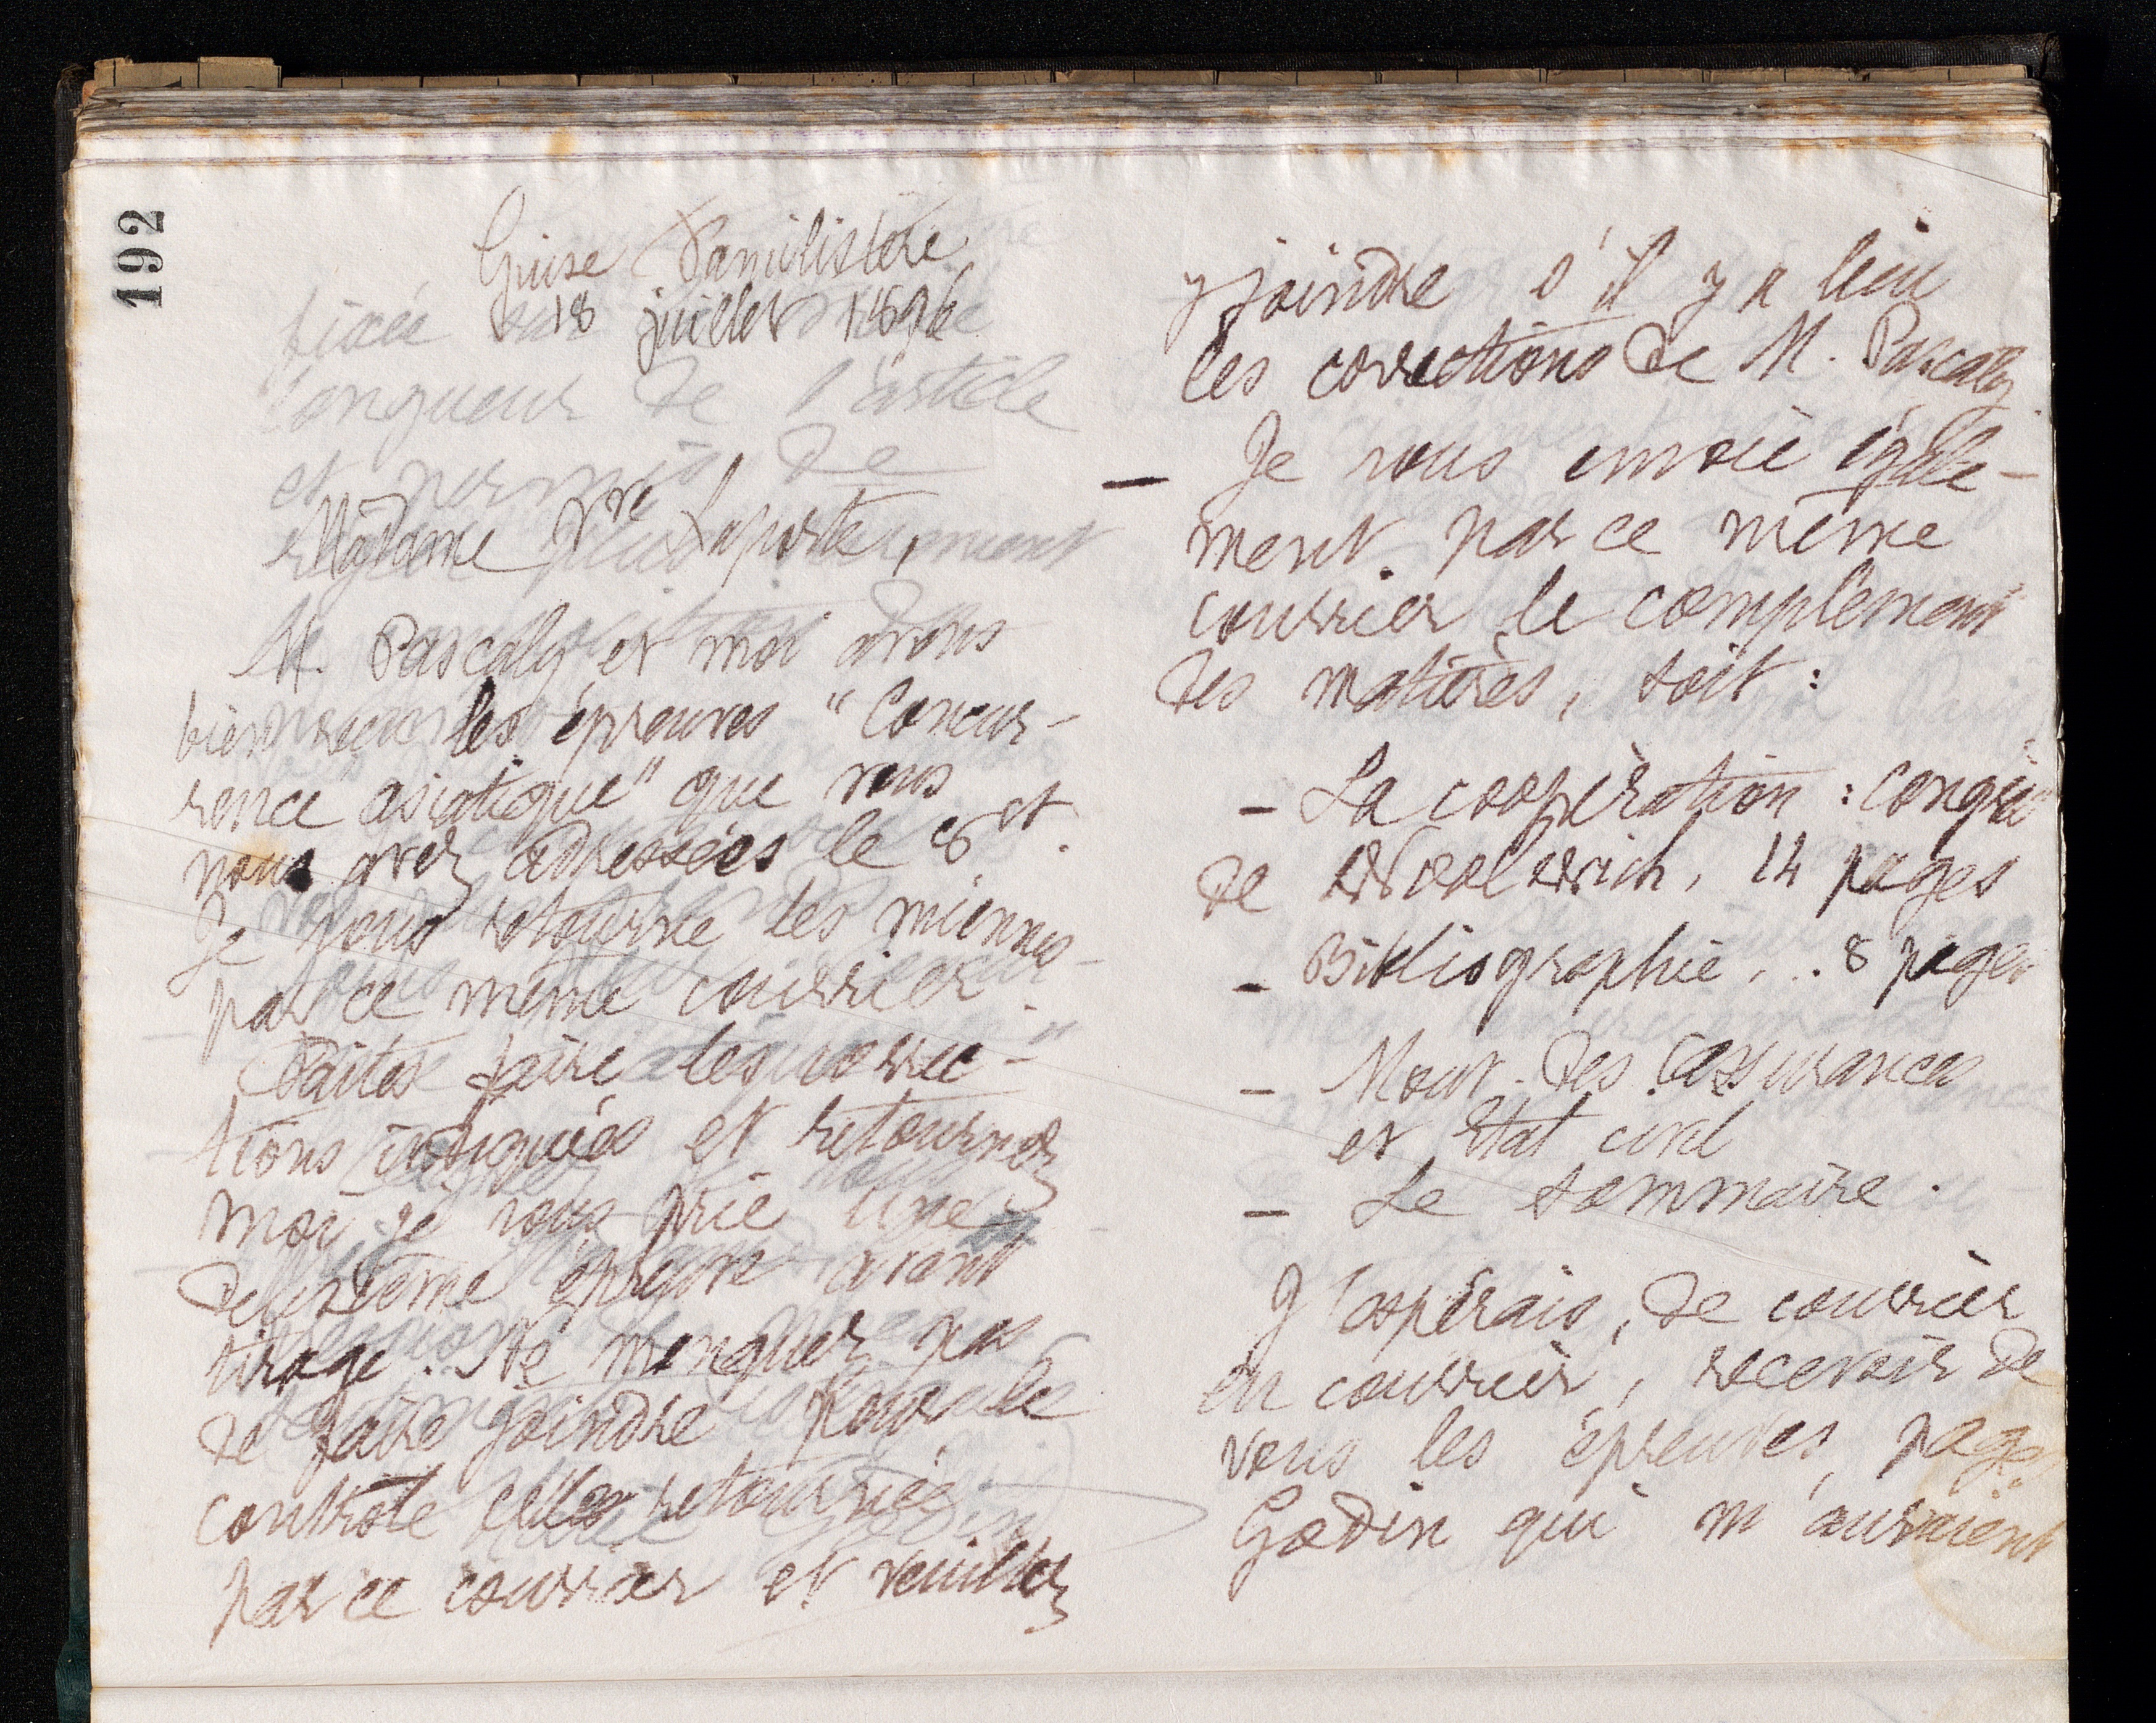 192
Guise Familistère
18 juillet 1896
Madame Vve Laporte,
M. Pascaly et moi avons
bien reçu les épreuves "Concur-
rence asiatique" que vous
nous avez adressées le 8 ct.
Je vous retourne les miennes
par ce même courrier.
Faites faire les correc-
tions indiquées et retournez
moi, je vous prie une
deuxième épreuve avant
tirage. Ne manquez pas
de faire joindre pour le
contrôle celles retournées
par ce courrier et veuillez
y joindre s'il y a lieu
les corrections de M. Pascaly.
— Je vous envoie égale-
ment par ce même
courrier le complément
des matières, soit :
- La coopération : Congrès
de Woolwich, 14 pages
- Bibliographie, .. 8 pages
- Mouv. des assurances
et Etat civil
- Le sommaire.
J'espérais, de courrier
en courrier, recevoir de
vous les épreuves, pages
Godin qui m'auraient